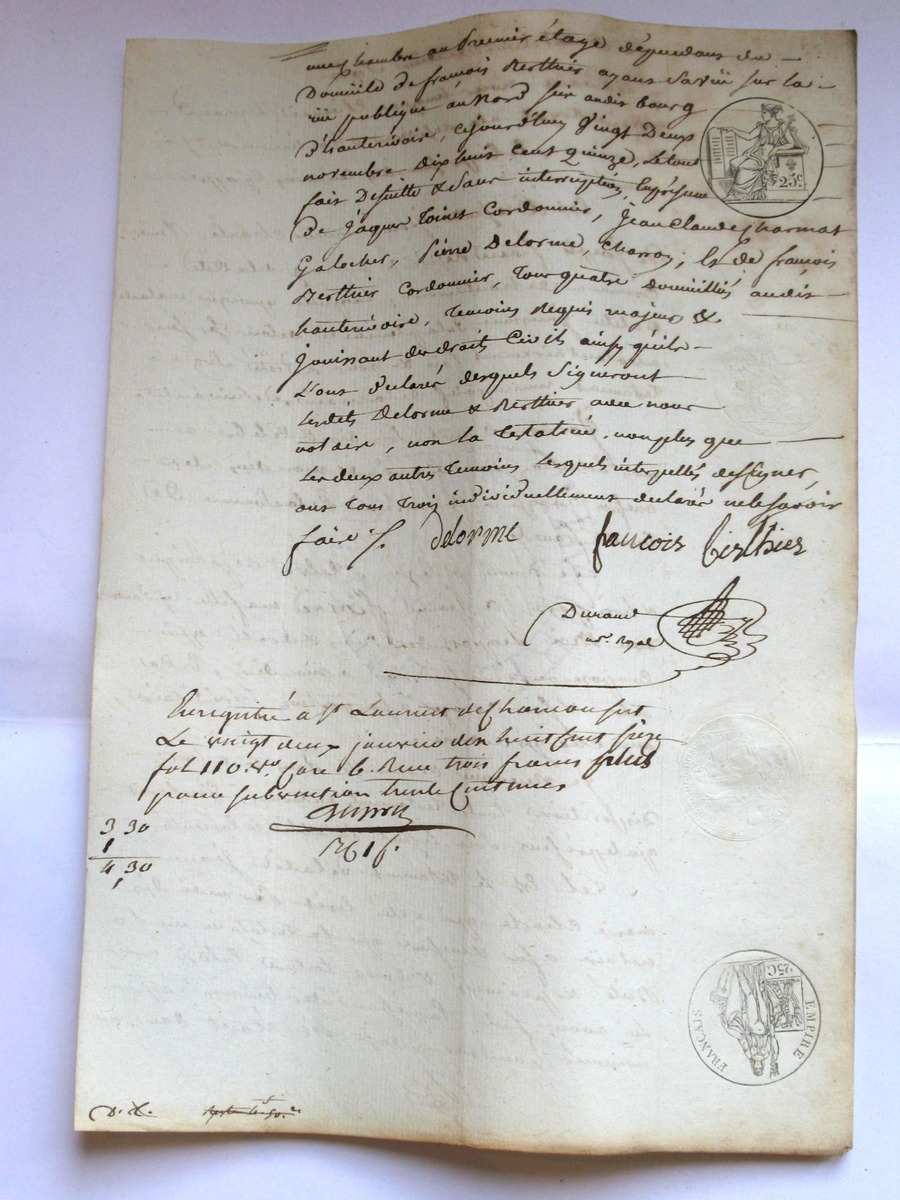 une chambre au premier étage dépendans du
Domicile de françois Berthier ayans Saviie sur la
rüe publique au Nord sise audit bourg
d'hauterivoire, cejourd'huy Vingt Deux
novembre dix huit cent quinze, le tout
fait Desuitte & Sans interruption, En présence
de Jâques Toinet Cordonnier, Jean Claude Charmat
Galocher, Pierre Delorme, Charron; Et de françois
Berthier Cordonnier, Tous quatre Domiciliés audit
hauterivoire, Temoins Requis majeurs &
Jouissant des droits Civils ainsy qu'ils
L'ont déclaré desquels Signeront
Lesdits Delorme & Berthier avec nous
notaire, non la Testatrice, nonplus que
Les deux autres Temoins Lesquels interpellés de Signer,
ont Tous Trois individuellement declaré ne le savoir
faire
delorme francois berthier
Durand
no.re Royal
25c.
Enregistré a St Laurent de Chamousset
Le vingt deux janvier dix huit cent seize
fol. 110. vo case 6. Reçu trois francs plus
pour subvention trente Centimes
3 30
1
4, 30
25C
EMPIRE
FRANÇAIS
D. X.